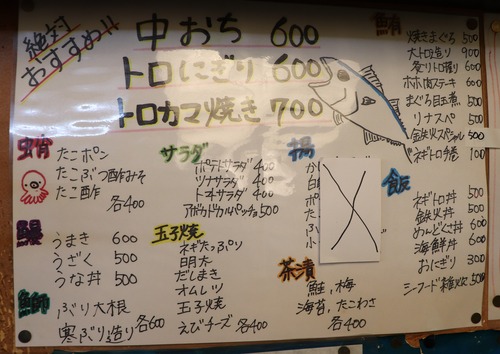 絶対
おすすめ!!
中おち 600
トロにぎり 600
トロカマ焼き 700
鮪
焼きまぐろ 500
大トロ造り 900
炙りトロ握り 600
ホホ肉ステーキ 600
まぐろ目玉煮 500
リナスペ 500
鉄火スペシャル 500
ネギトロ巻 100
たこポン
たこぶつ酢みそ
たこ酢
各400
鰻
うまき 600
うざく 500
うな丼 500
鰤
ぶり大根
寒ぶり造り 各600
サラダ
ポテトサラダ 400
ツナサラダ 400
トマトサラダ 400
アボカドカルパッチョ 500
玉子焼
ネギたっぷり
明太
だしまき
オムレツ
玉子焼
えびチーズ 各400
揚
飯
ネギトロ丼 500
鉄火丼 500
めんどくせ丼 600
海鮮丼 600
おにぎり 300
シーフード雑炊 500
茶漬
鮭,梅
海苔,たこわさ
各400